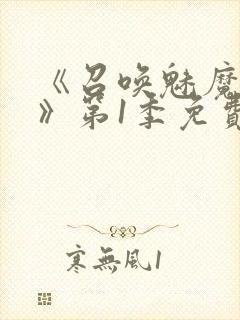 《召唤魅魔
》第1季免費
寒無風1